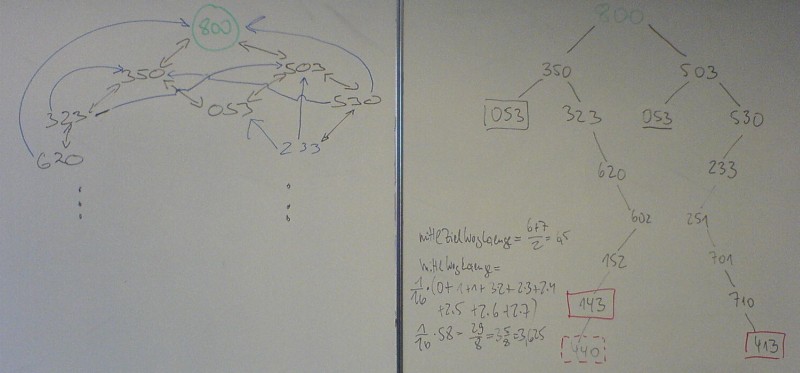 800
350 503
323 053 530
620 233
800
350 503
053 323 053 530
620 233
602 251
152 701
143 710
440 413
mittlZielWegLaenge = 6+7/2 = 6,5
mittlWegLaenge =
1/16 · (0+1+1+3·2+2·3+2·4
+2·5 +2·6+2·7)
1/16 · 58 = 29/8 = 3 5/8 = 3,625